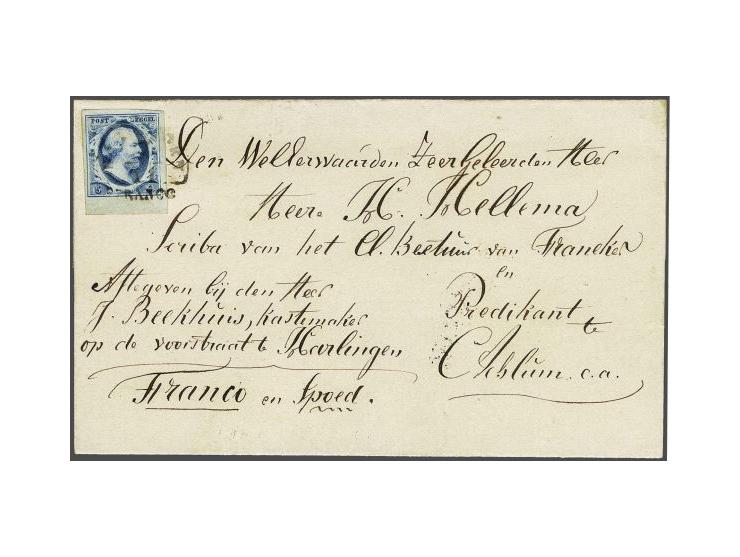 POST ZEGEL
5
FRANCO
Den WelEerwaarden Zeer Geleerden Heer
Heere H. Hellema
Scriba van het Cl. Bestuur van Franeker
en
Predikant
te
Achlum. c.a.
Aftegeven bij den Heer
J. Beekhuis, kastemaker
op de voorstraat te Harlingen
Franco en Spoed.